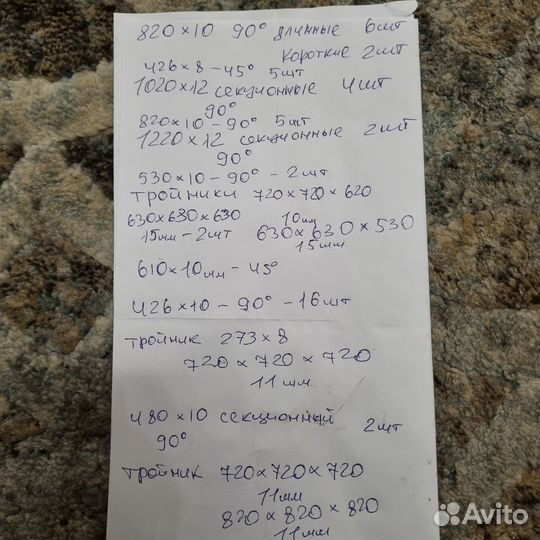 820×10 90° длинные 6шт
короткие 2шт
426×8-45° 5шт
1020×12 секционные 4шт
90°
820×10-90° 5шт
1220×12 секционные 2шт
90°
530×10-90°-2шт
тройники 720×720×620
10мм
630×630×630
15мм-2шт
630×630×530
15мм
610×10мм-45°
426×10-90°-16шт
тройник 273×8
720×720×720
11мм
480×10 секционный 2шт
90°
тройник 720×720×720
11мм
820×820×820
11мм
Avito